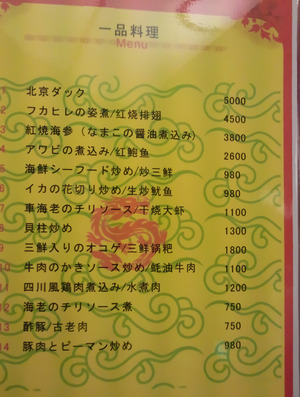 一品料理
Menu
1 北京ダック 5000
2 フカヒレの姿煮/红烧排翅 4500
3 紅焼海参（なまこの醤油煮込み） 3800
4 アワビの煮込み/红鲍鱼 2600
5 海鮮シーフード炒め/炒三鲜 980
6 イカの花切り炒め/生炒鱿鱼 980
7 車海老のチリソース/干烧大虾 1100
8 貝柱炒め 1300
9 三鮮入りのオコゲ/三鲜锅粑 1800
10 牛肉のかきソース炒め/蚝油牛肉 1100
11 四川風鶏肉煮込み/水煮肉 1200
12 海老のチリソース煮 750
13 酢豚/古老肉 750
14 豚肉とピーマン炒め 980